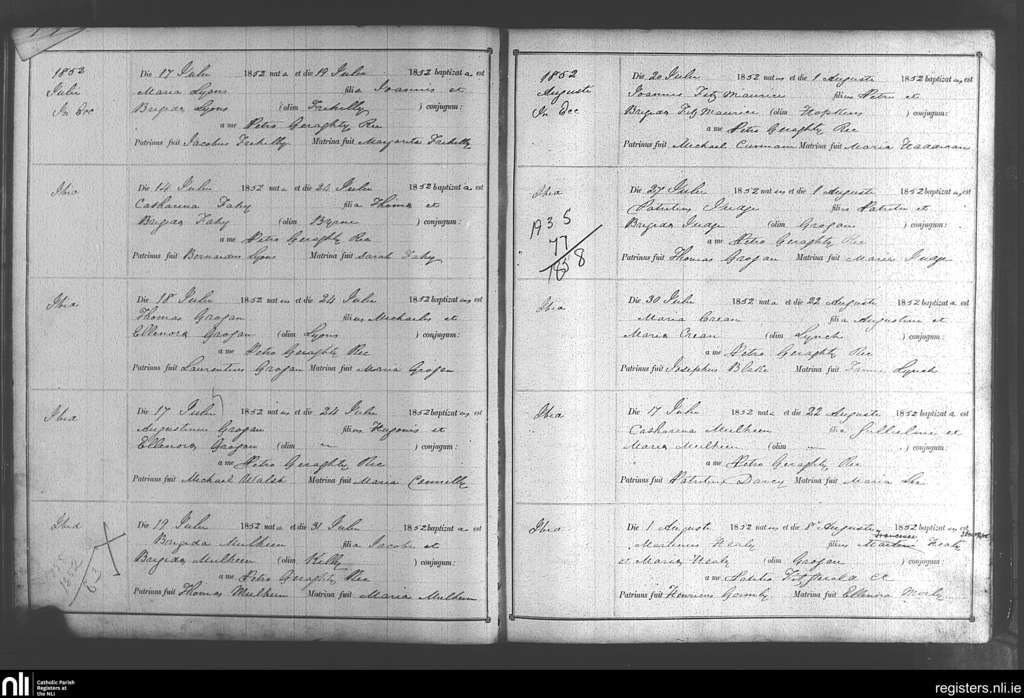 1852
Julii
In Ecc
Die 17 Julii 1852 nat a et die 19 Julii 1852 baptizat a est
Maria Lyons filia Joannis et
Brigida Lyons (olim ) conjugum:
a me Petro Geraghty Rec
Patrinus fuit Jacobus Matrina fuit Margarita
Ibid
Die 14 Julii 1852 nat a et die 24 Julii 1852 baptizat a est
Catharina Fahy filia Thoma et
Brigida Fahy (olim Byrne ) conjugum:
a me Petro Geraghty Rec
Patrinus fuit Bernardus Lyons Matrina fuit Sarah Fahy
Ibid
Die 18 Julii 1852 nat us et die 24 Julii 1852 baptizat us est
Thomas Grogan filius Michaelis et
Ellenora Grogan (olim Lyons ) conjugum:
a me Petro Geraghty Rec
Patrinus fuit Laurentius Grogan Matrina fuit Maria Grogan
Ibid
Die 17 Julii 1852 nat us et die 24 Julii 1852 baptizat us est
Augustinus Grogan filius Hugonis et
Ellenora Grogan (olim " ) conjugum:
a me Petro Geraghty Rec
Patrinus fuit Michael Walsh Matrina fuit Maria Connelly
Ibid
Die 19 Julii 1852 nat a et die 31 Julii 1852 baptizat a est
Brigida Mulkeen filia Jacobi et
Brigida Mulkeen (olim Kelly ) conjugum:
a me Petro Geraghty Rec
Patrinus fuit Thomas Mulkeen Matrina fuit Maria Mulkeen
1852
Augusti
In Ecc
Die 20 Julii 1852 nat us et die 1 Augusti 1852 baptizat us est
Joannis Fitz Maurice filius Petri et
Brigida Fitz Maurice (olim Hopkins ) conjugum:
a me Petro Geraghty Rec
Patrinus fuit Michael Matrina fuit Maria
Ibid
A35
77
1858
Die 27 Julii 1852 nat us et die 1 Augusti 1852 baptizat us est
Patritius Judge filius Patritii et
Brigida Judge (olim Grogan ) conjugum:
a me Petro Geraghty Rec
Patrinus fuit Thomas Grogan Matrina fuit Maria Judge
Ibid
Die 30 Julii 1852 nat a et die 22 Augusti 1852 baptizat a est
Maria Crean filia Augustini et
Maria Crean (olim Lynch ) conjugum:
a me Petro Geraghty Rec
Patrinus fuit Josephus Blake Matrina fuit Lynch
Ibid
Die 17 Julii 1852 nat a et die 22 Augusti 1852 baptizat a est
Catharina Mulkeen filia Gulielmi et
Maria Mulkeen (olim " ) conjugum:
a me Petro Geraghty Rec
Patrinus fuit Patritius Darcy Matrina fuit Maria Lee
Ibid
Die 1 Augusti 1852 nat us et die 8 Augusti 1852 baptizat us est
Martinus Healy filius Martini Healy
et Maria Healy (olim Grogan ) conjugum:
a me Fitzgerald
Patrinus fuit Henricus Gormly Matrina fuit Ellenora Morly
nli
Catholic Parish
Registers at
the NLI
registers.nli.ie